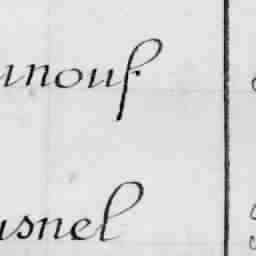 unouf
usnel